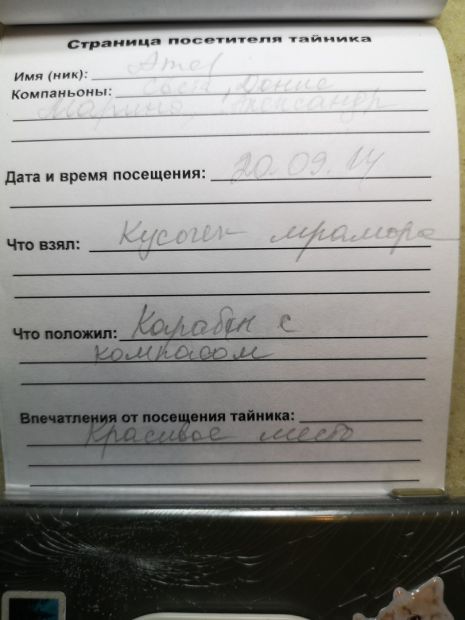 Страница посетителя тайника
Имя (ник): Amel
Компаньоны: Света, Денис
Марина, Александр
Дата и время посещения: 20.09.14
Что взял: Кусочек мрамора
Что положил: Карабин с
компасом
Впечатления от посещения тайника:
Красивое место